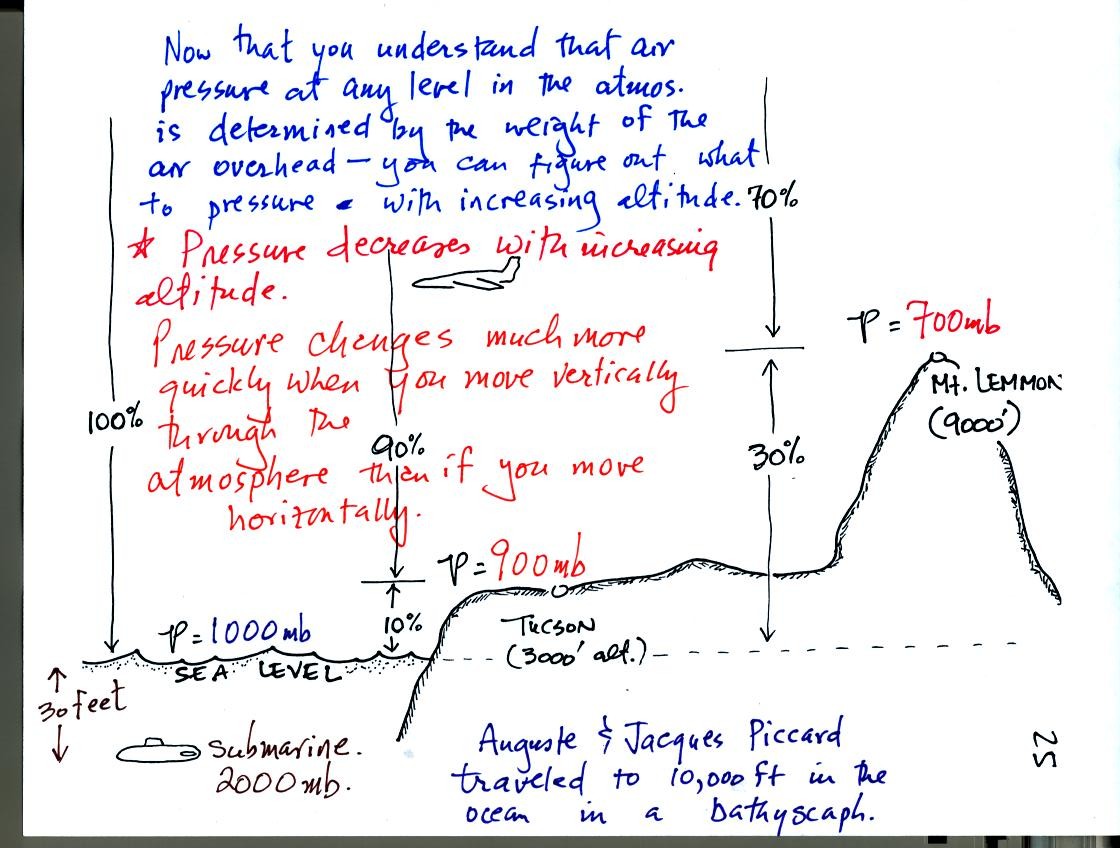 Now that you understand that air
pressure at any level in the atmos.
is determined by the weight of the
air overhead – you can figure out what
to pressure with increasing altitude.
* Pressure decreases with increasing
altitude.
Pressure changes much more
quickly when you move vertically
through the
atmosphere than if you move
horizontally.
100%
90%
10%
70%
30%
P = 700mb
Mt. LEMMON
(9000')
P = 900mb
TUCSON
(3000' alt.)
P = 1000mb
SEA LEVEL
30 feet
Submarine.
2000mb.
Auguste & Jacques Piccard
traveled to 10,000 ft in the
ocean in a bathyscaph.
25